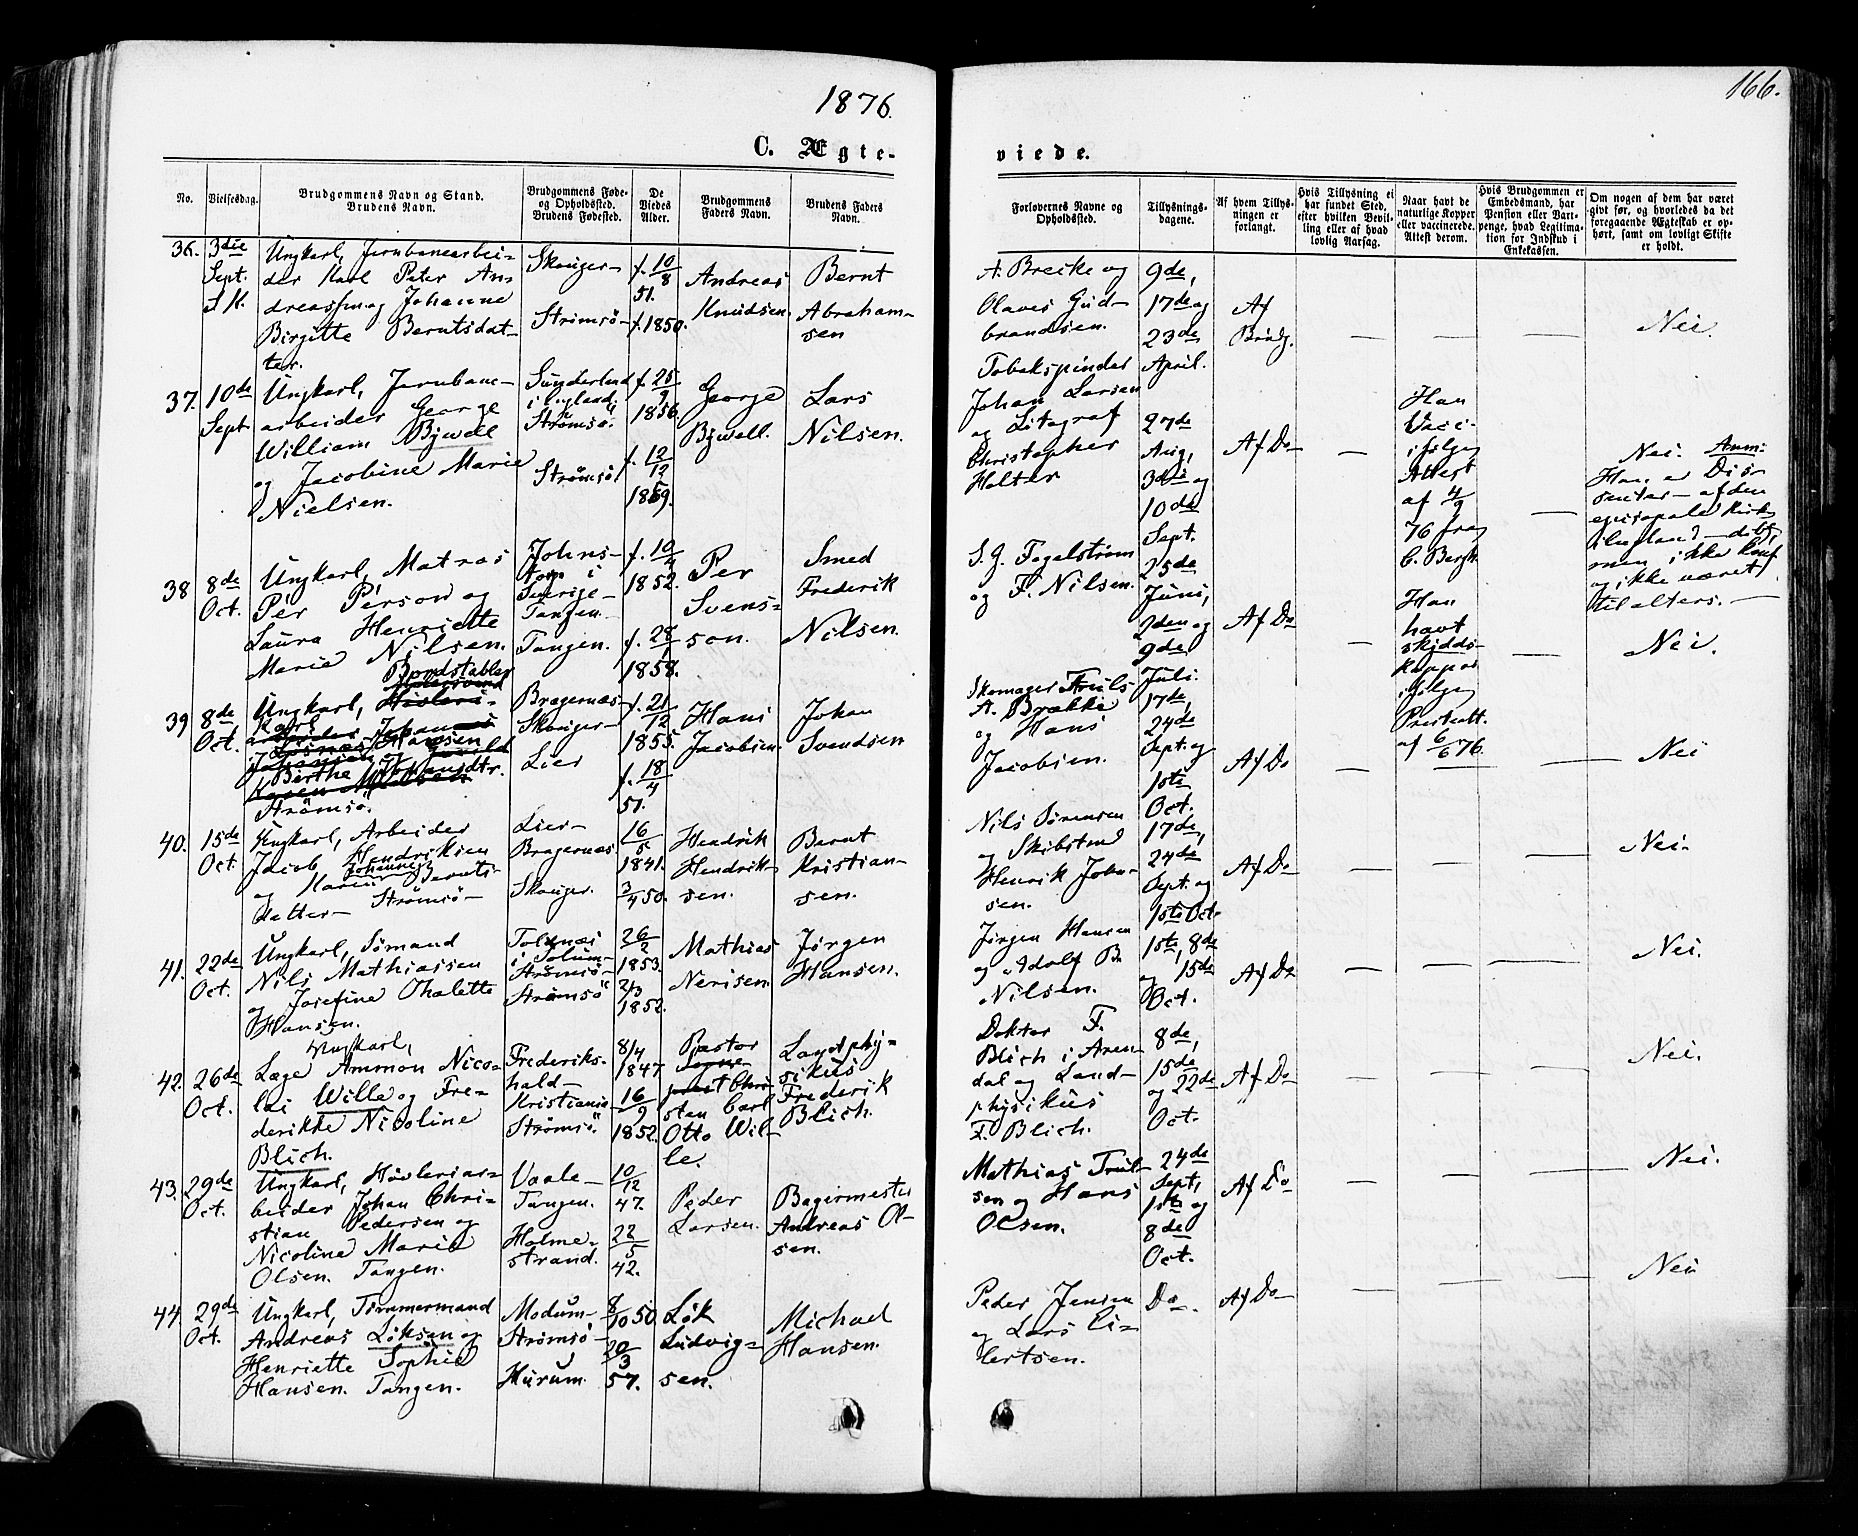 1876.
166.
C. Ægte-
viede.
No.
Vielsesdag.
Brudgommens Navn og Stand.
Brudens Navn.
Brudgommens Føde-
og Opholdssted.
Brudens Fødested.
De
Viedes
Alder.
Brudgommens
Faders Navn.
Brudens Faders
Navn.
Forlovernes Navne og
Opholdssted.
Tillysnings-
dagene.
Af hvem Tillys-
ningen er
forlangt.
Hvis Tillysning ei
har fundet Sted,
efter hvilken Bevil-
ling eller af hvad
lovlig Aarsag.
Naar havt de
naturlige Kopper
eller vaccinerede.
Attest derom.
Hvis Brudgommen er
Embedsmand, har
Pension eller Vart-
penge, hvad Legitima-
tion for Indskud i
Enkekassen.
Om nogen af dem har været
givt før, og hvorledes da det
foregaaende Ægteskab er op-
hørt, samt om lovligt Skifte
er holdt.
36.
3die
Sept.
S.K.
Ungkarl, Jernbanearbei-
der Karl Peter An-
dreassen og Johanne
Birgitte Berntsdat-
ter.
Skouger-
Strømsö-
f. 10/8
51.
f. 1850.
Andreas
Knudsen.
Bernt
Abraham-
sen
A. Brecke og
Olaves Gud-
brandsen.
9de,
17de og
23de
April.
Af
Brudg.
Nei.
37.
10de
Sept.
Ungkarl, Jernbane-
arbeider George
William Bywell
og Jacobine Marie
Nielsen.
Sunderland
i England;
Strømsö.
Strømsö
f. 25/9
1856.
f. 12/12
1859.
George
Bywell.
Lars
Nilsen.
Tobakspinder
Johan Larsen
og Litograf
Christopher
Holter
27de
Aug,
3die og
10de
Sept.
Af Do
Han
Vacc.
ifølge
Attest
af 4/9
76 fra
C. Bergh.
Nei. Anm.
Han er Dis-
senter - af den
episcopale Kirke
i England - døbt,
men ikke konf.
og ikke været
til alters. -
38
8de
Oct.
Ungkarl, Matros
Pér Pérson og
Laura Henriette
Marie Nilsen.
Johns-
torp i
Sverige-
Tangen.
Tangen.
f. 10/4
1852.
f. 28/1
1858.
Per
Svens-
son.
Smed
Frederik
Nilsen.
S. G. Fogelstrøm
og F. Nilsen.
25de
Juni,
2den og
9de
Juli.
Af Do
Han
havt
skjolds-
kopper
ifølge
Presteatt.
af 6/6 76.
Nei.
39
8de
Oct.
Bordstabler
Ungkarl,
Karl
Johan
Hansen
Birthe
Strømsö.
Bragernæs-
Skouger-
Lier
f. 21/12
1855.
f. 18/4
51.
Hans
Jacobsen.
Johan
Svendsen
Skomager Truls
A. Brække
og Hans
Jacobsen.
17de,
24de
Sept. og
1ste
Oct.
Af Do
Nei
40.
15de
Oct.
Ungkarl, Arbeider
Jacob Hendriksen
og Karen Johanne Bernts-
datter- Strømsö-
Lier-
Bragernæs
Skouger.
16/5
1841.
3/4 50.
Hendrik
Hendrik-
sen.
Bernt
Kristian-
sen.
Nils Sørensen
og Skibstmd
Henrik John-
sen.
17de,
24de
Sept. og
1ste Oct.
Af Do
Nei.
41.
22de
Oct.
Ungkarl, Sömand
Nils Mathiassen
og Josefine Thalette
Hansen.
i Solum-
Strømsö-
Strømsö
26/2
1853.
2/3
1852.
Mathias
Nerisen.
Jörgen
Hansen.
Jörgen Hansen
og Adolf B.
Nilsen.
1ste, 8de
og 15de
Oct.
Af Do
Nei.
42.
26de
Oct.
Ungkarl,
Læge Ammon Nico-
lai Wille og Fre-
derikke Nicoline
Blich.
Frederiks-
hald-
Kristiania
Strømsö.
8/4
1847
16/9
1852.
Pastor
Sogne-
prest Chri-
sten Carl
Otto Wil-
le.
Landphy-
sikus
Frederik
Blich.
Doktor F.
Blich i Aren-
dal og Land-
physikus
F. Blich.
8de,
15de
og 22de
Oct.
Af Do
Nei.
43.
29de
Oct.
Ungkarl, Høvleriar-
beider Johan Chri-
stian Pedersen og
Nicoline Marie
Olsen. Tangen.
Vaale-
Tangen.
Holme-
strand.
10/12
47.
22/5
42.
Peder
Larsen.
Bagermester
Andreas Ol-
sen.
Mathias Trul-
sen og Hans
Olsen.
24de
Sept,
1ste og
8de
Oct.
Af Do
Nei.
44.
29de
Oct.
Ungkarl, Tømmermand
Andreas Løksen og
Henriette Sophie
Hansen. Tangen.
Modum-
Strømsö-
Hurum.
8/10 50.
20/3
57.
Løk
Ludvig-
sen.
Michael
Hansen.
Peder Jensen
og Lars Ei-
lertsen.
Do.
Af Do
Nei